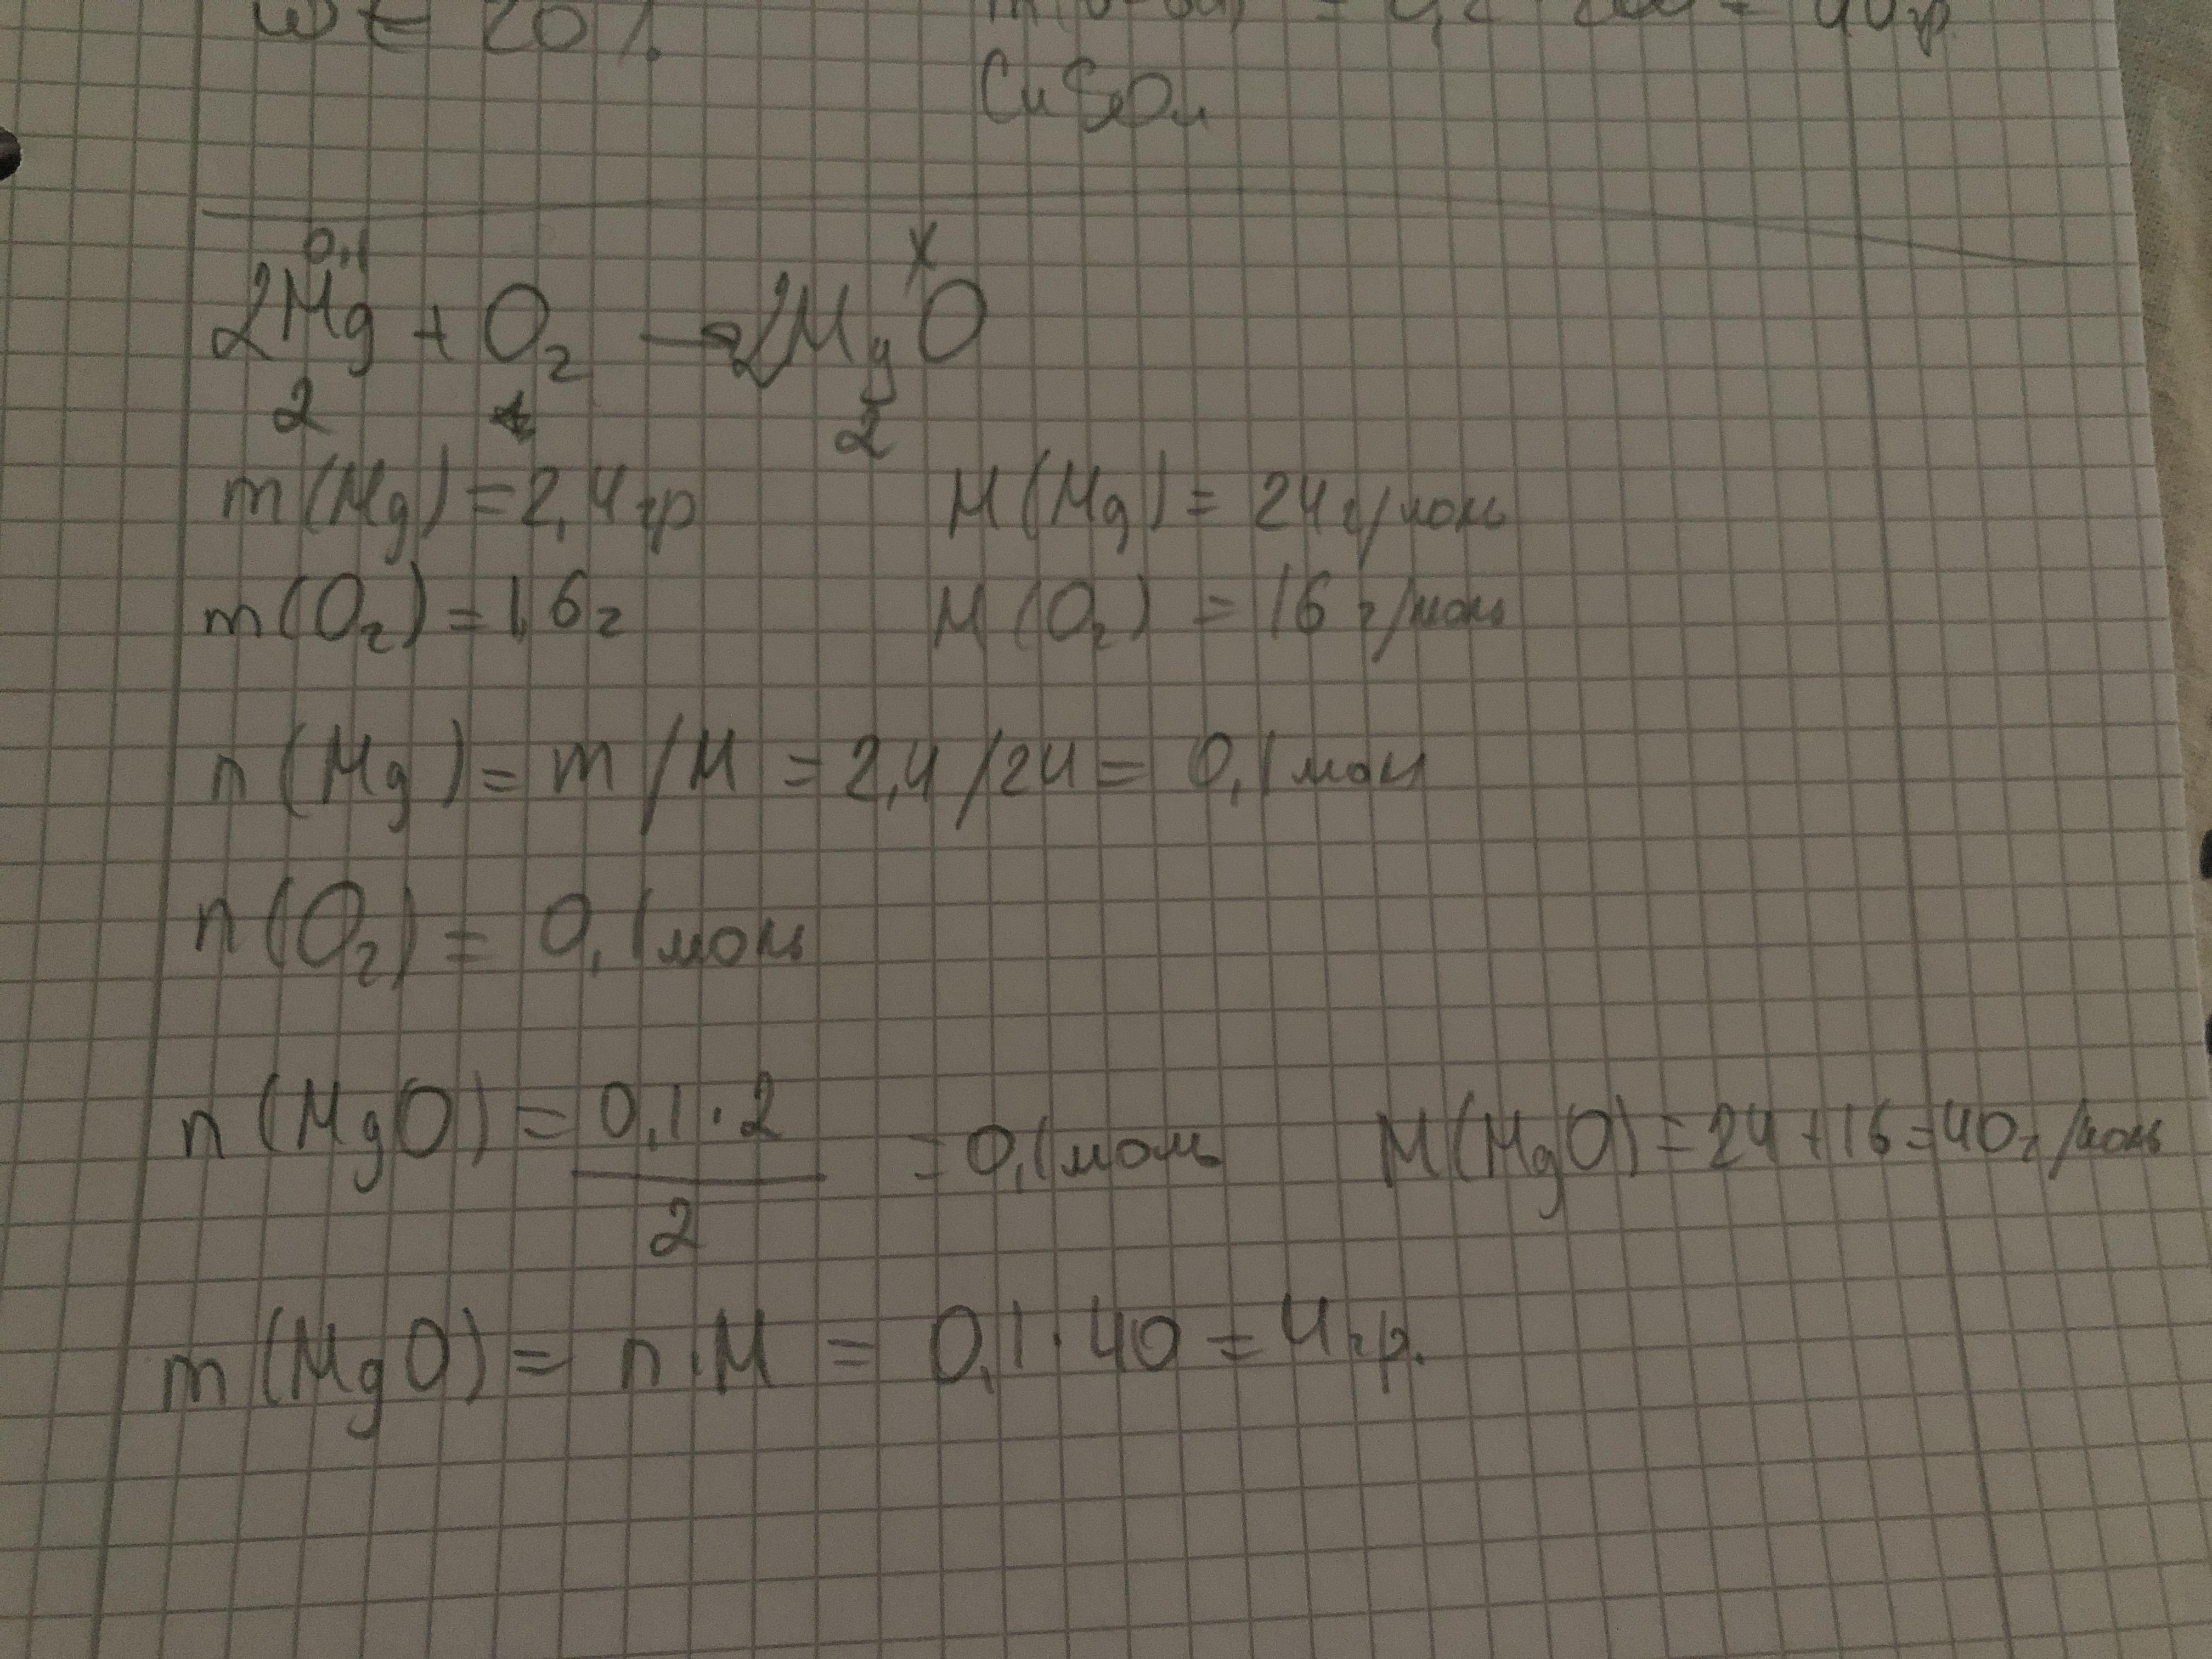 w = 20 %.
CuSO₄
0,1 x
2Mg + O₂ → 2MgO
2 2
m(Mg) = 2,4 гр M(Mg) = 24 г/моль
m(O₂) = 1,6 г M(O₂) = 16 г/моль
n(Mg) = m/M = 2,4/24 = 0,1 мол
n(O₂) = 0,1 моль
n(MgO) = 0,1·2 = 0,1 моль M(MgO) = 24+16=40 г/моль
2
m(MgO) = n·M = 0,1·40 = 4 гр.